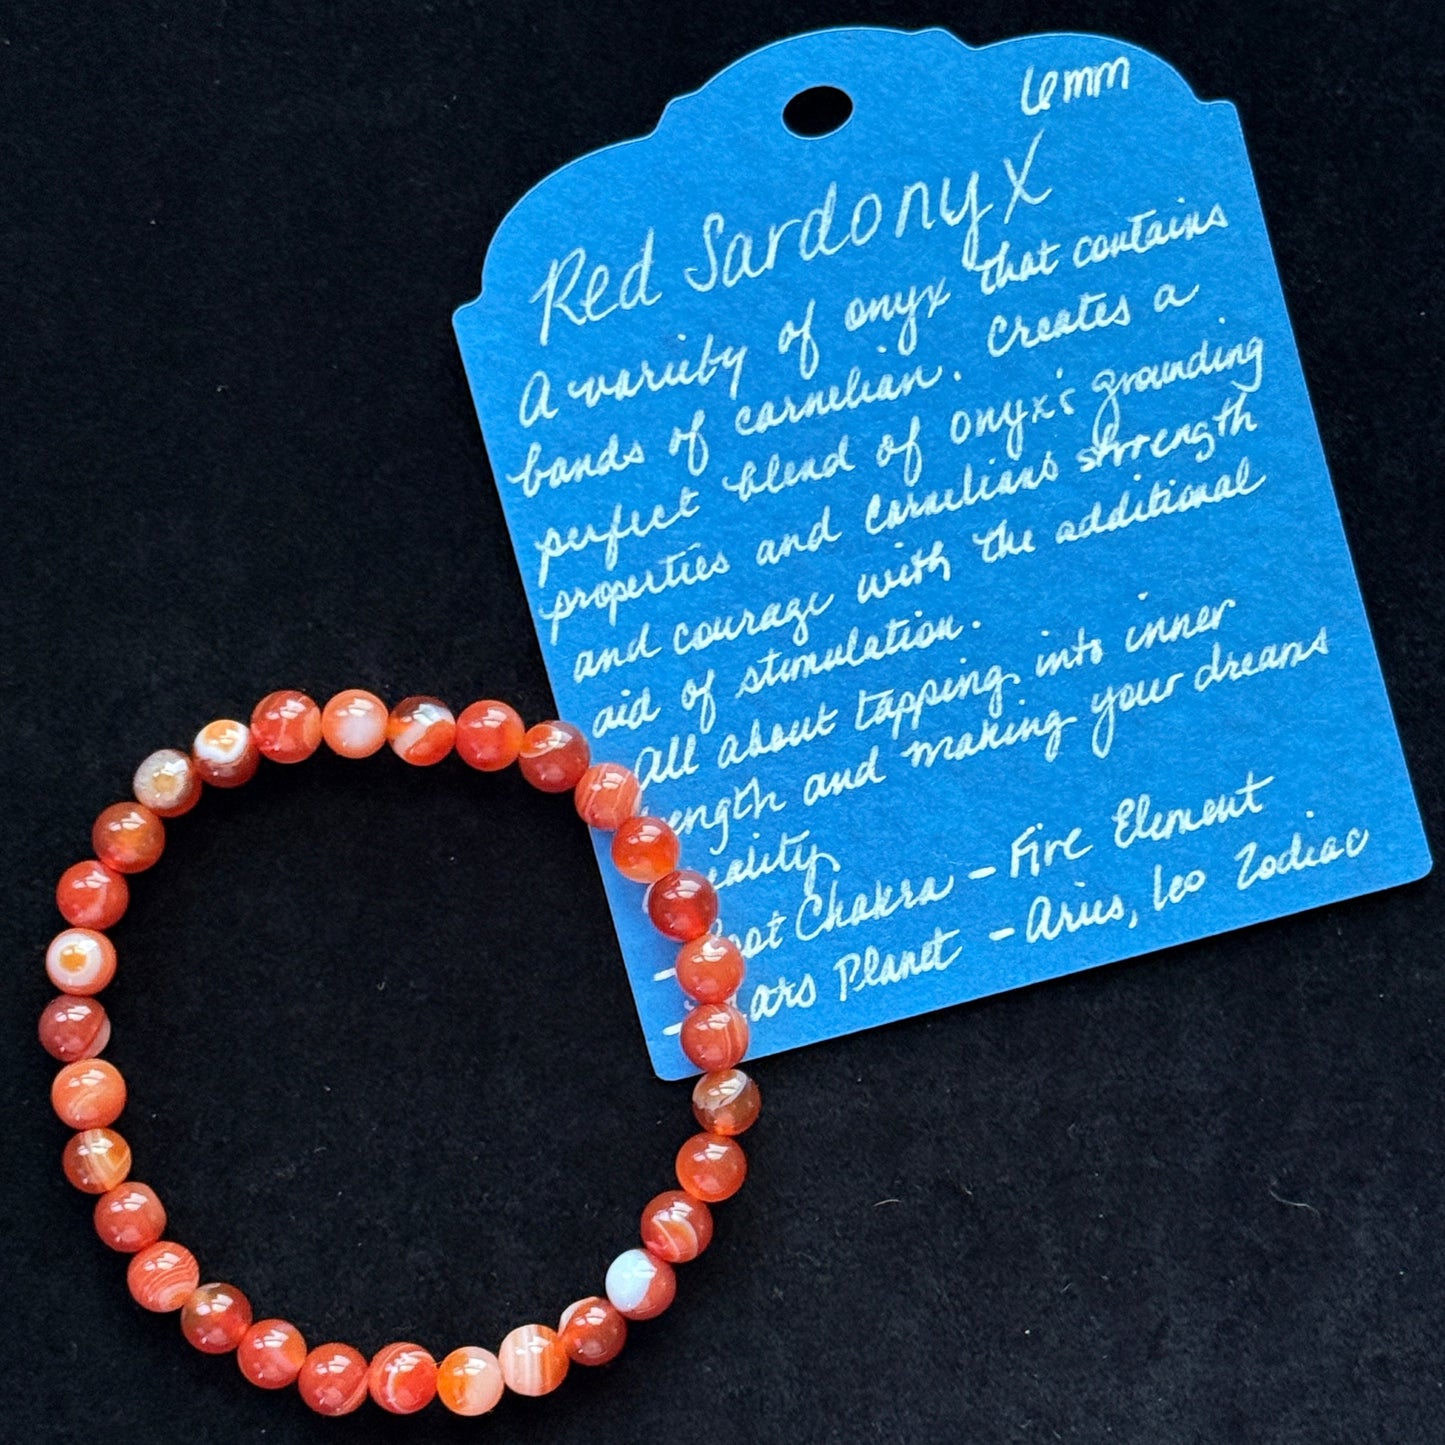 6mm
Red Sardonyx
A variety of onyx that contains
bands of carnelian. Creates a
perfect blend of onyx's grounding
properties and Carnelians strength
and courage with the additional
aid of stimulation.
All about tapping into inner
rength and making your dreams
eality
- oot Chakra - Fire Element
- ars Planet - Aries, Leo Zodiac